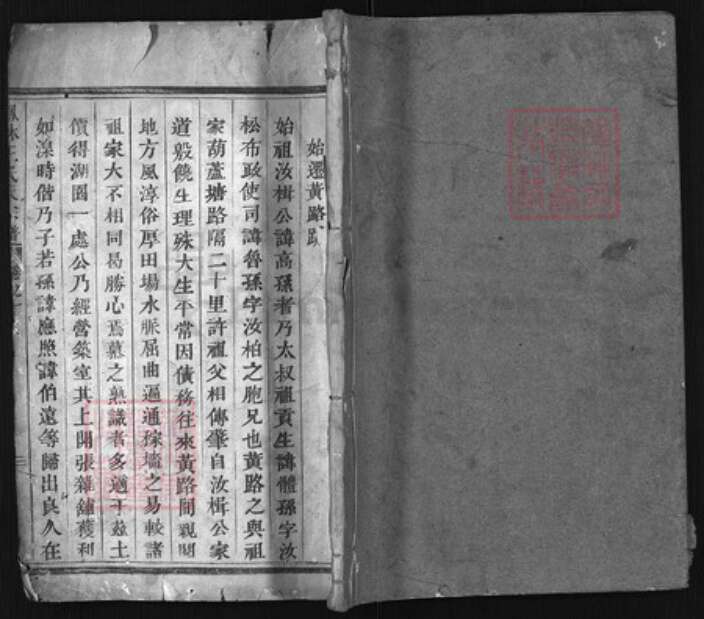 始遷黃路䟦
始祖汝楫公諱高孫者乃太叔祖貢生諱體孫字汝
松布政使司諱魯孫字汝柏之胞兄也黃路之與祖
家葫蘆塘路隔二十里許祖父相傳肇自汝楫公家
道殷饒生理殊大生平常因債務往來黃路間親閱
地方風淳俗厚田場水脈屈曲逼通稼墻之易較諸
祖家大不相同曷勝心焉慕之熟識者多遒于茲土
價得湖園一處公乃經營築室其上開張雜鋪獲利
如湶時偕乃子若孫諱應照諱伯遠等歸出良久在